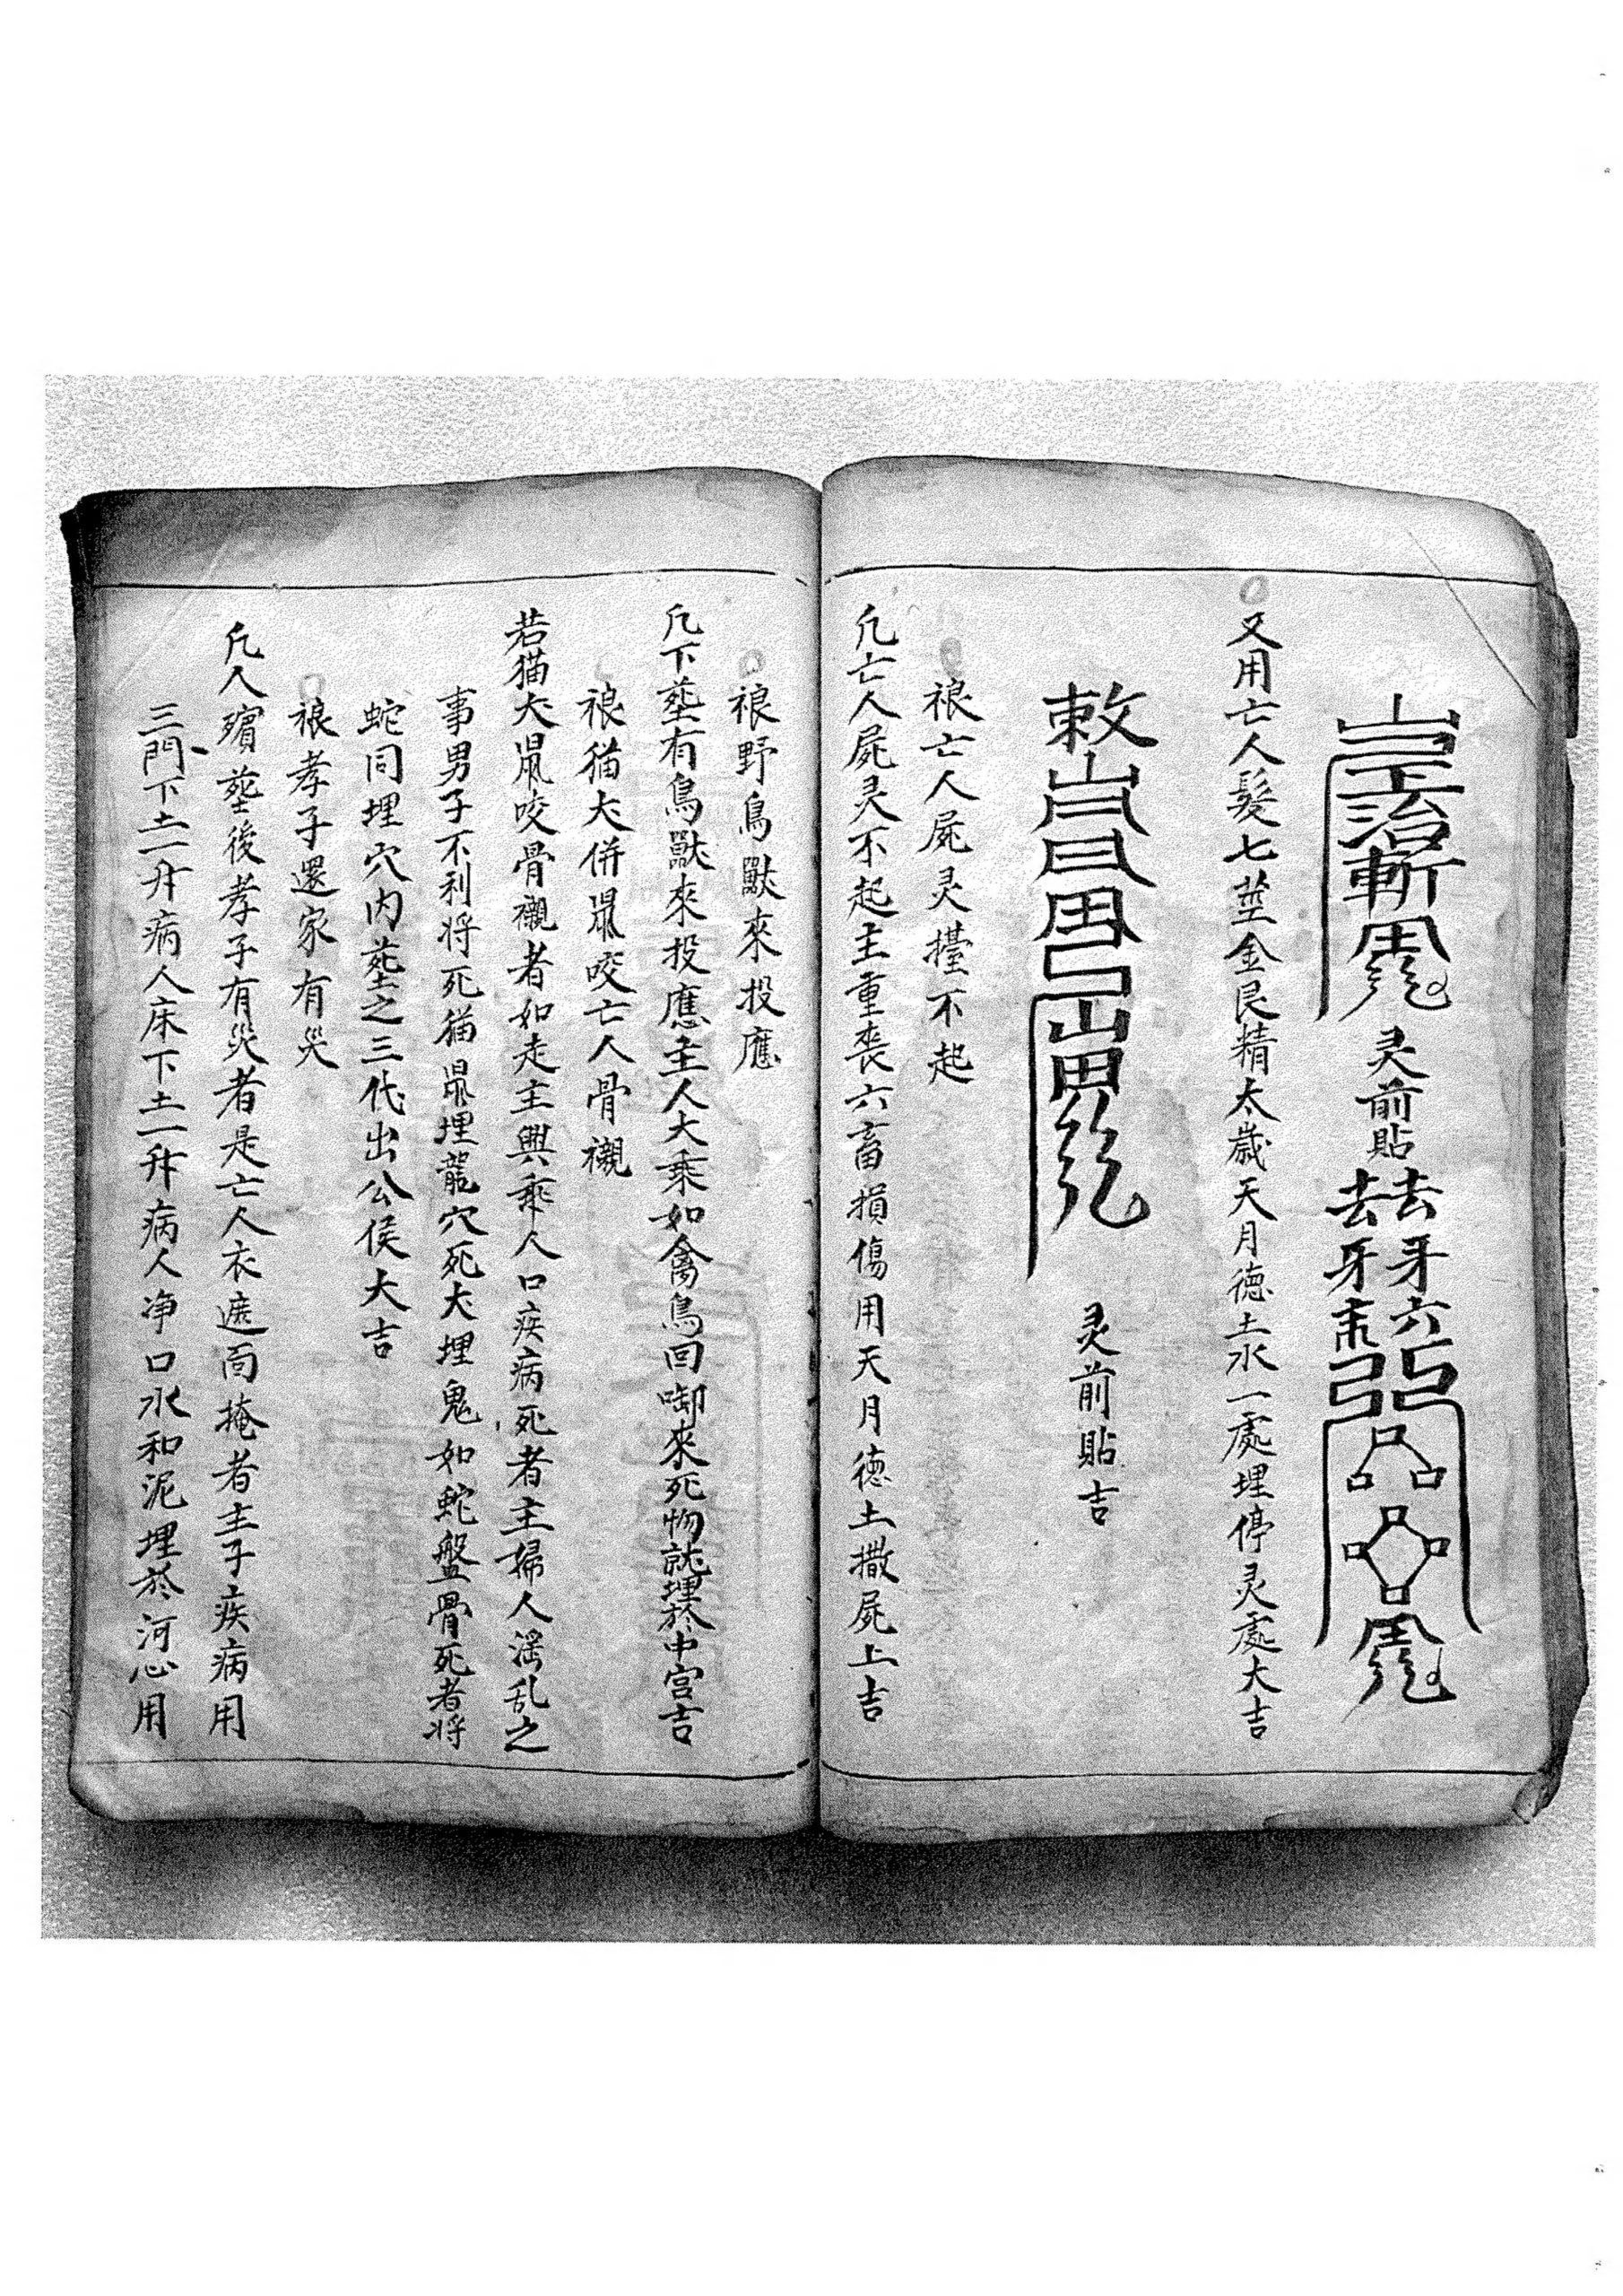 治斬 灵前貼 去牙六 去牙末
又用亡人髮七莖金艮精太歲天月德土水一處埋停灵處大吉
敕 灵前貼吉
禳亡人屍灵擡不起
凢亡人屍灵不起主重丧六畜損傷用天月德土撒屍上吉
禳野鳥獸來投應
凢下塟有鳥獸來投應主人大乘如禽鳥回啣來死物就埋於中宮吉
禳猫犬併鼠咬亡人骨襯
若猫犬鼠咬骨襯者如走主興乘人口疾病死者主婦人滛乱之
事男子不利将死猫鼠埋龍穴死犬埋鬼如蛇盤骨死者将
蛇同埋穴内塟之三代出公侯大吉
禳孝子還家有災
凢人殯塟後孝子有災者是亡人衣遮面掩者主子疾病用
三門下土一升病人床下土一升病人净口水和泥埋於河心用